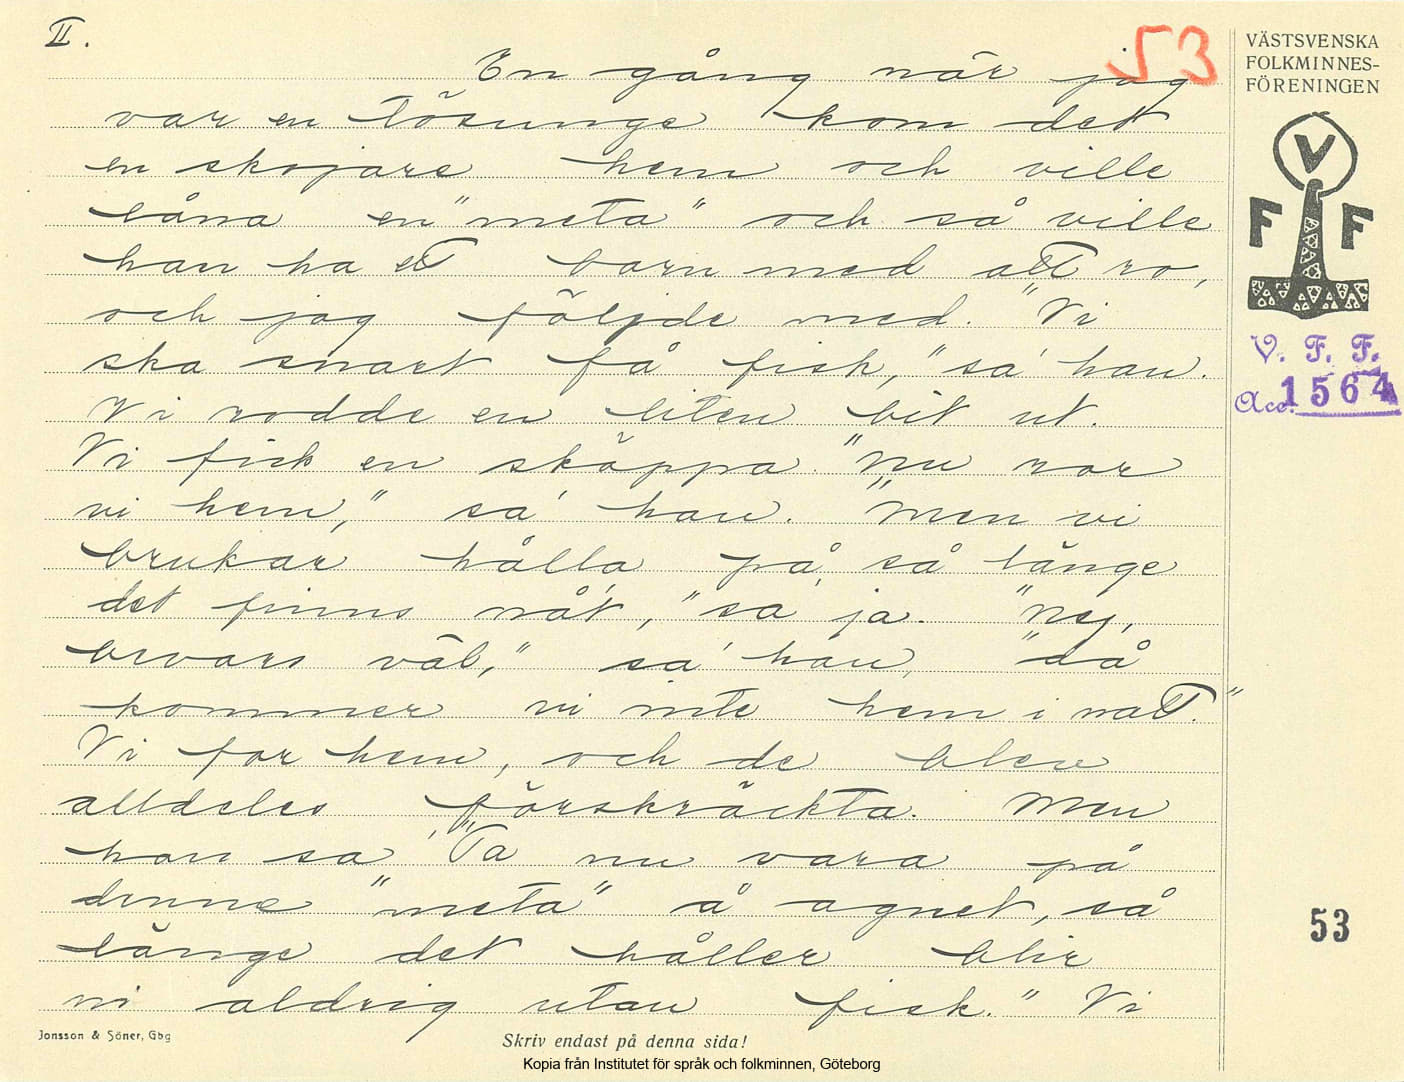 II.
53
En gång när jag
var en tösunge kom det
en skojare hem och ville
låna en "meta" och så ville
han ha ett barn med att ro,
och jag följde med. "Vi
ska snart få fisk," sa' han.
Vi rodde en liten bit ut.
Vi fick en sköppa. "Nu ror
vi hem," sa' han. "Men vi
brukar hålla på så länge
det finns nåt," sa' ja. "Nej,
bevars väl," sa' han, "då
kommer vi inte hem i natt."
Vi for hem, och de blev
alldeles förskräckta. Men
han sa' "Ta nu vara på
denne "meta" å agnet, så
länge det håller blir
vi aldrig utan fisk." Vi
VÄSTSVENSKA
FOLKMINNES-
FÖRENINGEN
V
F F
V. F. F.
Acc. 1564
53
Jonsson & Söner, Gbg
Skriv endast på denna sida!
Kopia från Institutet för språk och folkminnen, Göteborg